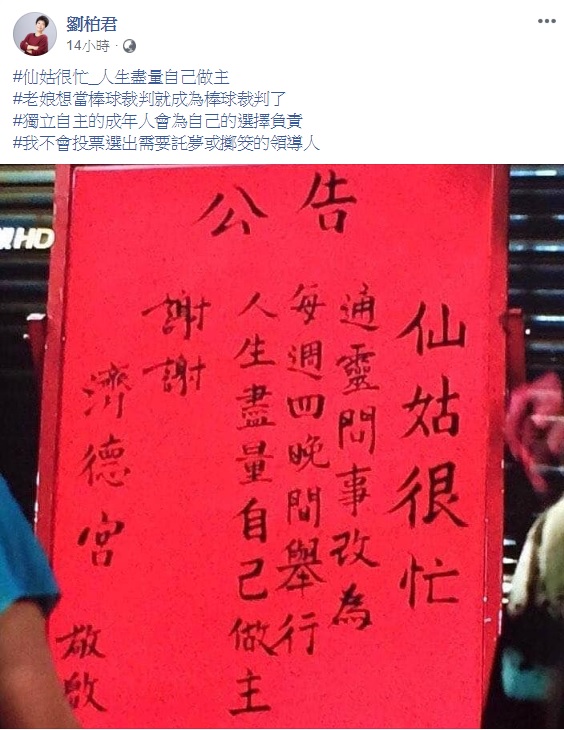 劉柏君
14小時
#仙姑很忙_人生盡量自己做主
#老娘想當棒球裁判就成為棒球裁判了
#獨立自主的成年人會為自己的選擇負責
#我不會投票選出需要託夢或擲筊的領導人
HD
公告
仙姑很忙
通靈問事改為
每週四晚間舉行
人生盡量自己做主
謝謝
濟德宮
敬啟